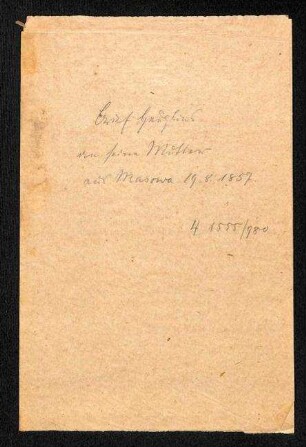 Brief Hauslins
an seine Mutter
aus Masowa 19.8.1857
4 1555/980